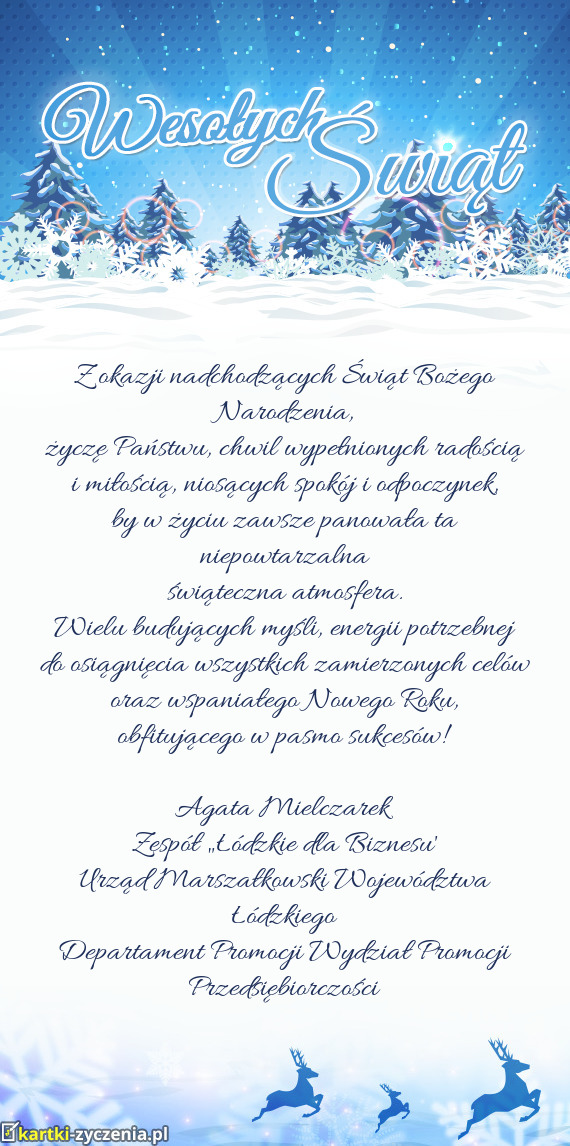 Wesołych
Świąt
Z okazji nadchodzących Świąt Bożego
Narodzenia,
życzę Państwu, chwil wypełnionych radością
i miłością, niosących spokój i odpoczynek,
by w życiu zawsze panowała ta
niepowtarzalna
świąteczna atmosfera.
Wielu budujących myśli, energii potrzebnej
do osiągnięcia wszystkich zamierzonych celów
oraz wspaniałego Nowego Roku,
obfitującego w pasmo sukcesów!
Agata Mielczarek
Zespół „Łódzkie dla Biznesu'
Urząd Marszałkowski Województwa
Łódzkiego
Departament Promocji Wydział Promocji
Przedsiębiorczości
kartki-zyczenia.pl